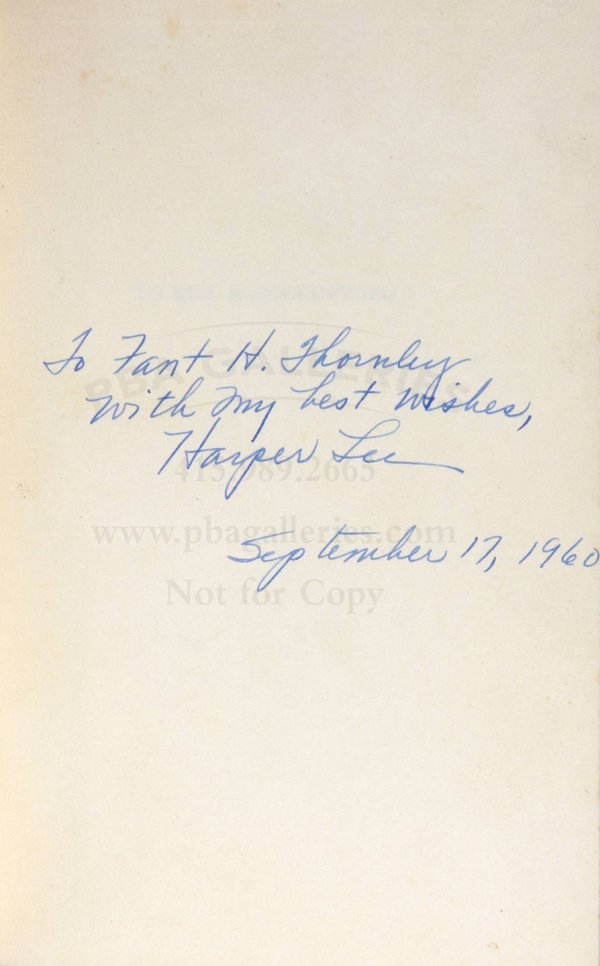 TO KILL A MOCKINGBIRD
To Fant H. Thornley
PBA GALLERIES
with my best wishes,
Harper Lee
415.989.2665
www.pbagalleries.com
September 17, 1960
Not for Copy